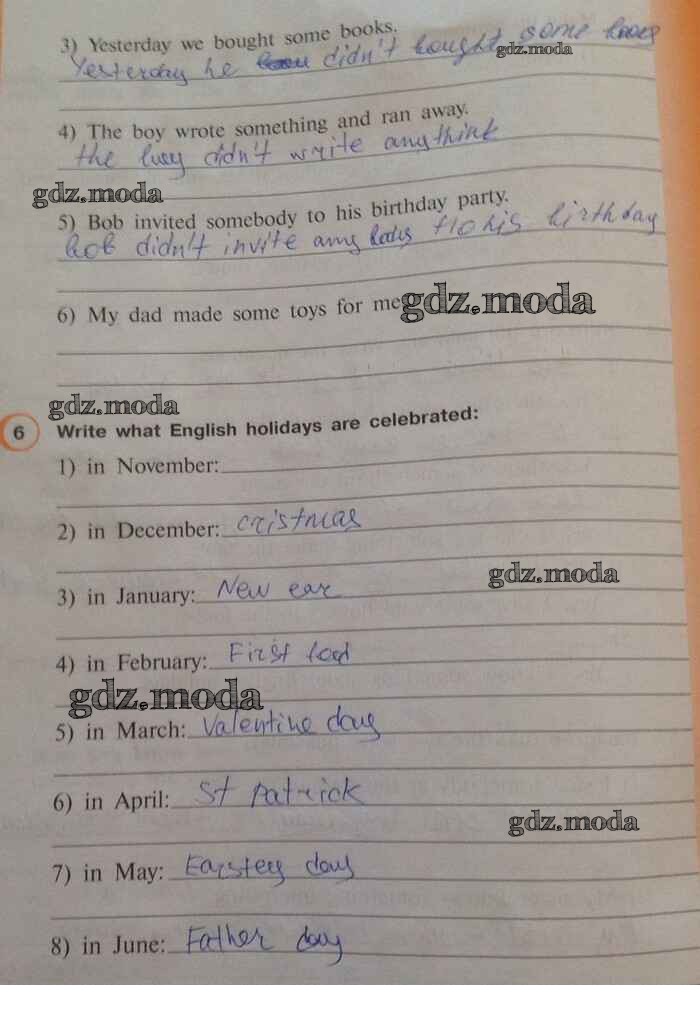 3) Yesterday we bought some books.
Yesterday he didn't bought some
gdz.moda
4) The boy wrote something and ran away.
the didn't write anythink
gdz.moda
5) Bob invited somebody to his birthday party.
Bob didn't invite his birthday
6) My dad made some toys for me
gdz.moda
gdz.moda
6 Write what English holidays are celebrated:
1) in November:
2) in December: cristmas
gdz.moda
3) in January: New ear
4) in February: First
gdz.moda
5) in March: Valentine day
6) in April: St Patrick
gdz.moda
7) in May: day
8) in June: Father day